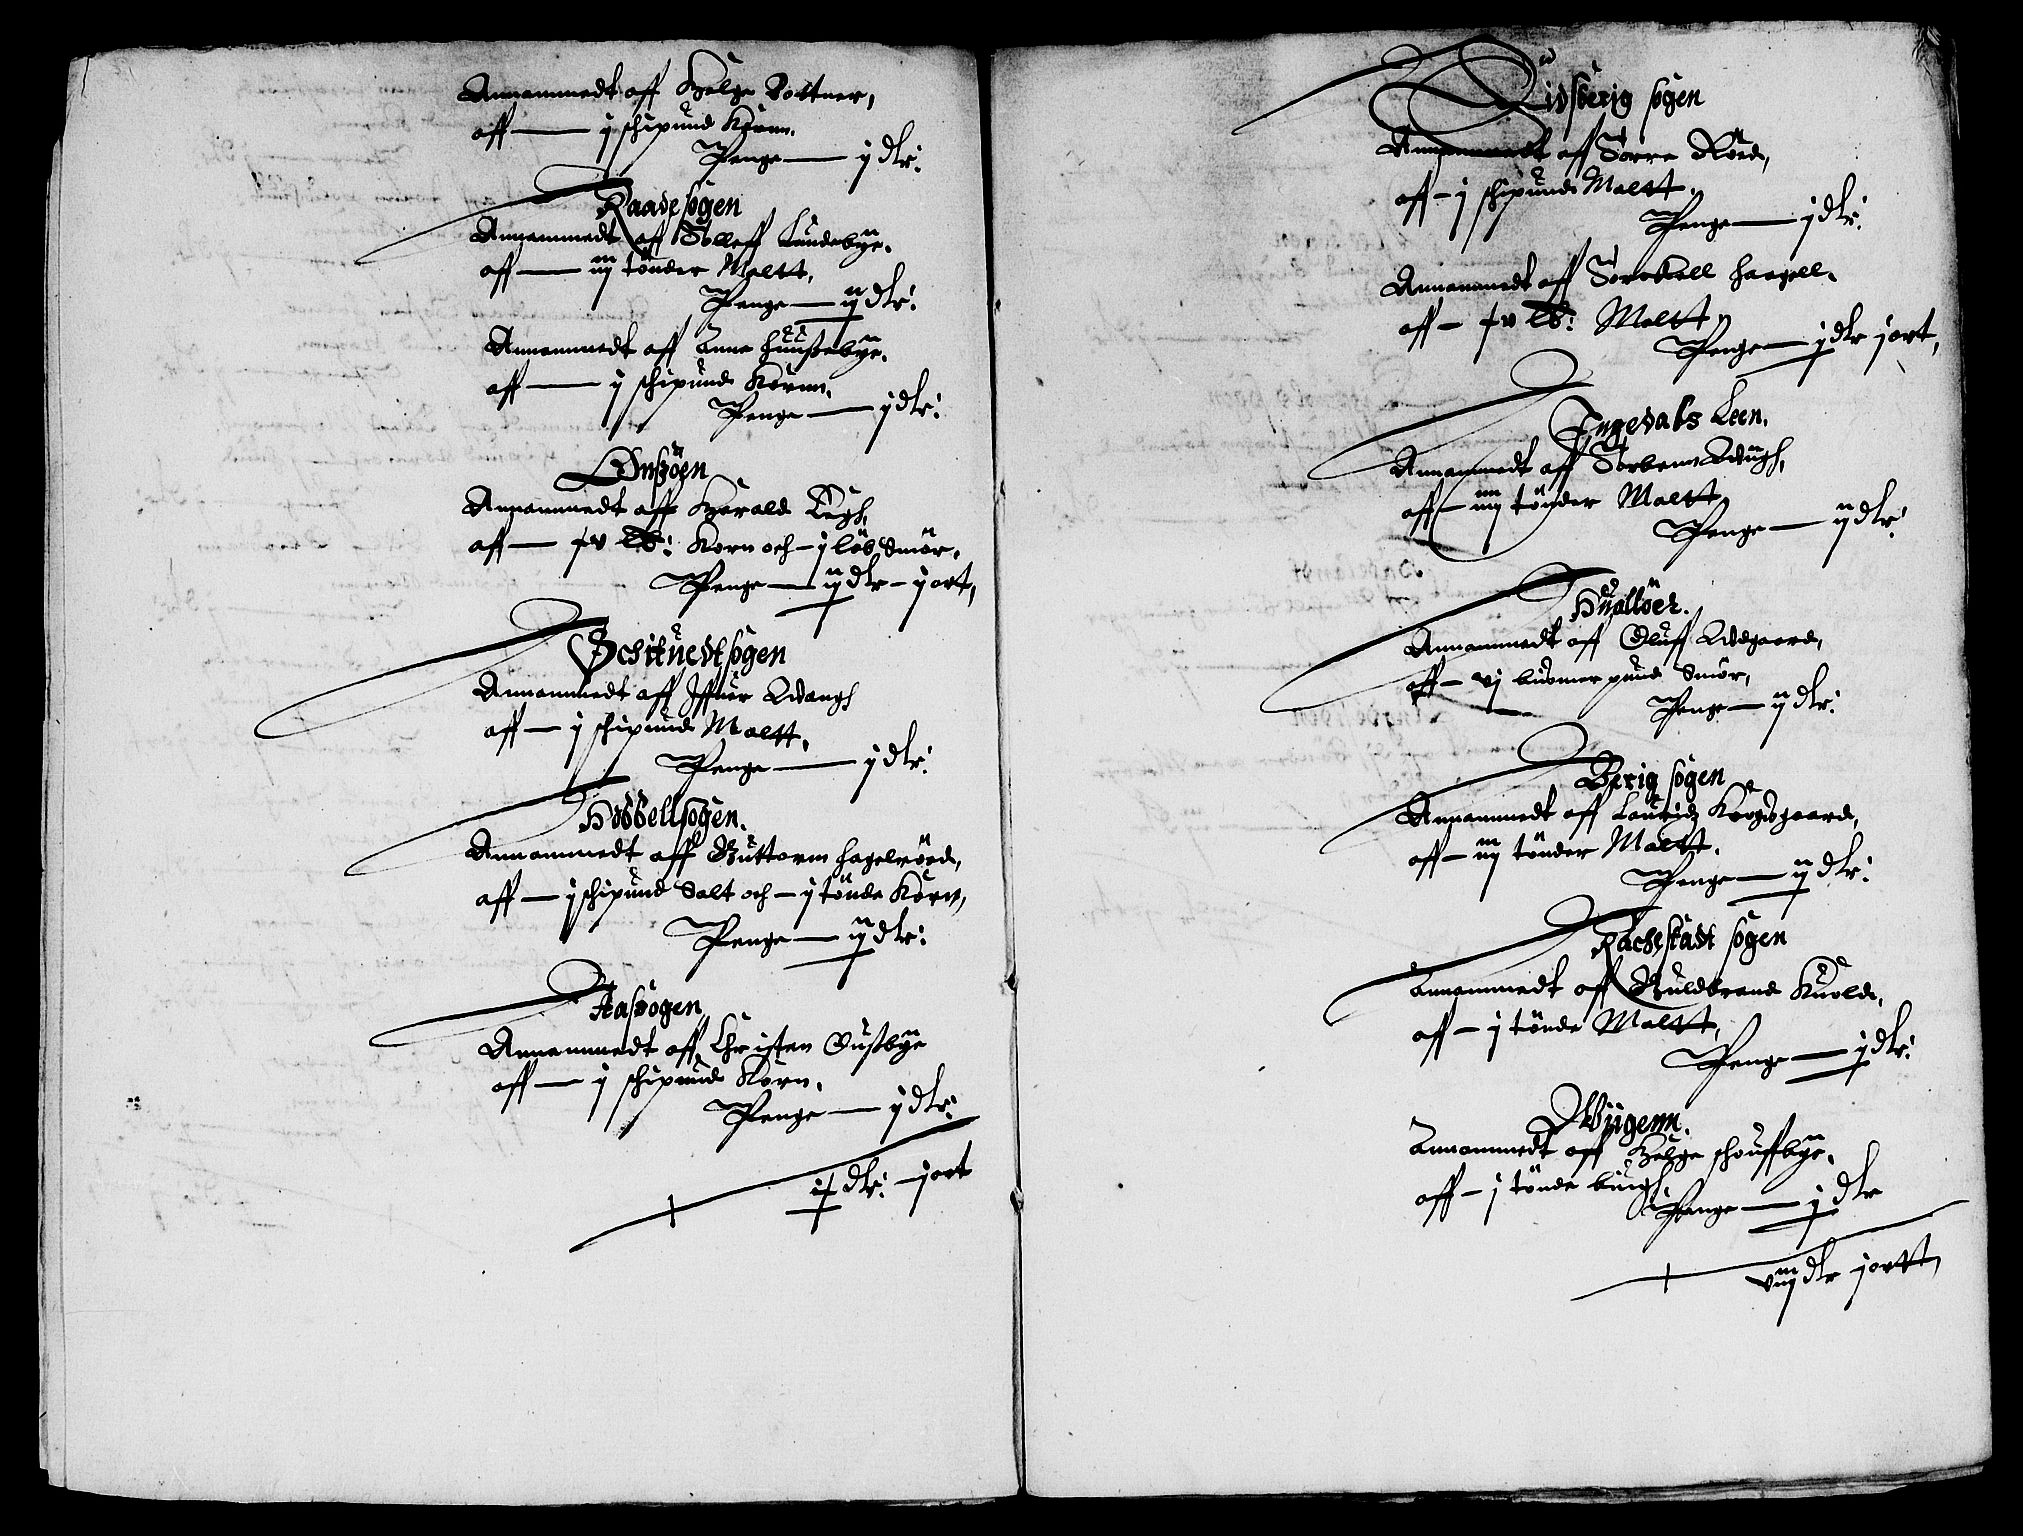 Annammedt aff Helge Bottner,
aff — j schipund Korn.
Penge — j dlr:
Raadesogen
Annammedt aff Tolleff Lundebye.
aff — iiij tönder Maltt,
Penge — ij dlr:
Annammedt aff Anne Huusebye.
aff — j schipund Kornn,
Penge — j dlr:
Onsøen
Annammedt aff Harald
aff — xv lb: Korn och — j löb Smör,
Penge — ij dlr — j ort,
Schituedt sogen
Annammedt aff Iffuer
aff — j schipund Maltt,
Penge — j dlr:
Hobbell sogen.
Annammedt aff Guttorm Hagelröed,
aff — j schipund Salt och — j tönde Korn,
Penge — ij dlr:
Aassogen
Annammedt aff Christen Dusbye
aff — j schipund Korn,
Penge — j dlr:
dlr: j ort
Eidsberig sogen
Annammedt aff Torre Röed,
aff — j schipund Maltt,
Penge — j dlr:
Annammedt aff Torckell Haagell,
aff — xv lb: Maltt
Penge — j dlr j ort,
Ingedals Leen.
Annammedt aff Torbenn
aff — iiij tönder Maltt,
Penge — ij dlr:
Hualöer.
Annammedt aff Oluff Ødegaard,
aff — vj bismer pund Smör,
Penge — ij dlr:
Berig sogen
Annammedt aff Lauridz Krogsgaard,
aff — iiij tönder Maltt.
Penge — ij dlr:
Rachestadt sogen
Annammedt aff Guldbrand Kuold,
aff — j tönde Maltt,
Penge — j dlr:
Annammedt aff Helge Schouffbye,
aff — j tönde biugh,
Penge — j dlr
viij dlr j ortt,